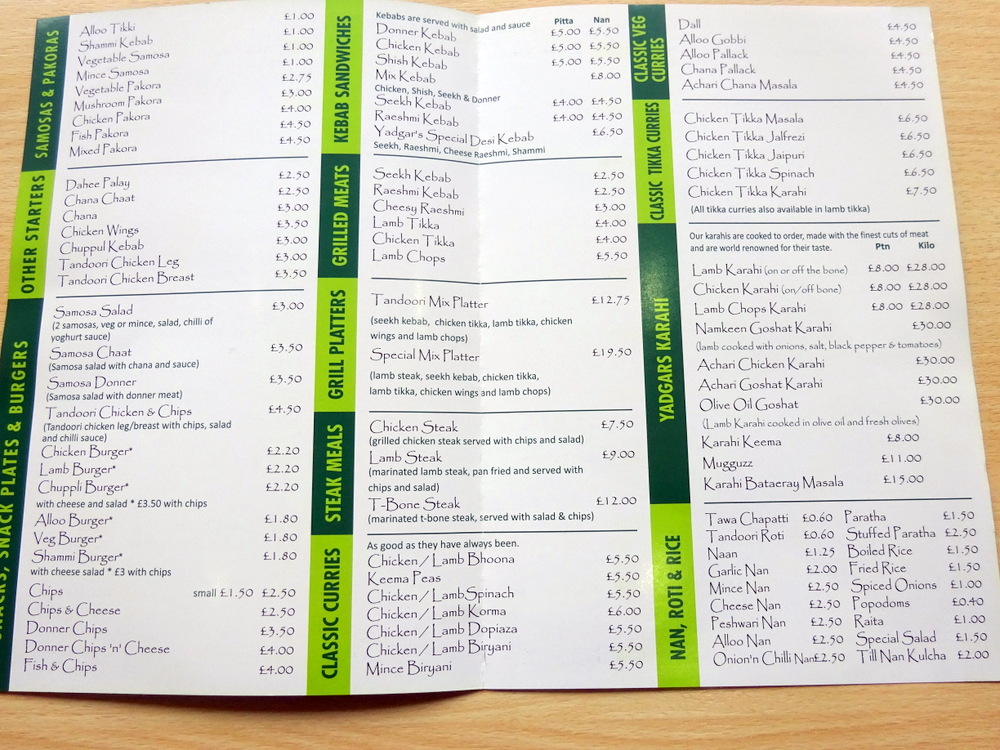 SAMOSAS & PAKORAS
Alloo Tikki £1.00
Shammi Kebab £1.00
Vegetable Samosa £1.00
Mince Samosa £1.00
Vegetable Pakora £2.75
Mushroom Pakora £3.00
Chicken Pakora £4.00
Fish Pakora £4.50
Mixed Pakora £4.50
OTHER STARTERS
Dahee Palay £2.50
Chana Chaat £2.50
Chana £3.00
Chicken Wings £3.50
Chuppul Kebab £3.00
Tandoori Chicken Leg £3.00
Tandoori Chicken Breast £3.50
SNACKS, SNACK PLATES & BURGERS
Samosa Salad £3.00
(2 samosas, veg or mince, salad, chilli of
yoghurt sauce)
Samosa Chaat £3.50
(Samosa salad with chana and sauce)
Samosa Donner £3.50
(Samosa salad with donner meat)
Tandoori Chicken & Chips £4.50
(Tandoori chicken leg/breast with chips, salad
and chilli sauce)
Chicken Burger* £2.20
Lamb Burger* £2.20
Chuppli Burger* £2.20
with cheese and salad * £3.50 with chips
Alloo Burger* £1.80
Veg Burger* £1.80
Shammi Burger* £1.80
with cheese salad * £3 with chips
Chips small £1.50 £2.50
Chips & Cheese £2.50
Donner Chips £3.50
Donner Chips 'n' Cheese £4.00
Fish & Chips £4.00
KEBAB SANDWICHES
Kebabs are served with salad and sauce Pitta Nan
Donner Kebab £5.00 £5.50
Chicken Kebab £5.00 £5.50
Shish Kebab £5.00 £5.50
Mix Kebab £8.00
Chicken, Shish, Seekh & Donner
Seekh Kebab £4.00 £4.50
Raeshmi Kebab £4.00 £4.50
Yadgar's Special Desi Kebab £6.50
Seekh, Raeshmi, Cheese Raeshmi, Shammi
GRILLED MEATS
Seekh Kebab £2.50
Raeshmi Kebab £2.50
Cheesy Raeshmi £3.00
Lamb Tikka £4.00
Chicken Tikka £4.00
Lamb Chops £5.50
GRILL PLATTERS
Tandoori Mix Platter £12.75
(seekh kebab, chicken tikka, lamb tikka, chicken
wings and lamb chops)
Special Mix Platter £19.50
(lamb steak, seekh kebab, chicken tikka,
lamb tikka, chicken wings and lamb chops)
STEAK MEALS
Chicken Steak £7.50
(grilled chicken steak served with chips and salad)
Lamb Steak £9.00
(marinated lamb steak, pan fried and served with
chips and salad)
T-Bone Steak £12.00
(marinated t-bone steak, served with salad & chips)
CLASSIC CURRIES
As good as they have always been.
Chicken / Lamb Bhoona £5.50
Keema Peas £5.50
Chicken / LambSpinach £5.50
Chicken / Lamb Korma £6.00
Chicken / Lamb Dopiaza £5.50
Chicken / Lamb Biryani £5.50
Mince Biryani £5.50
CLASSIC VEG
CURRIES
Dall £4.50
Alloo Gobbi £4.50
Alloo Pallack £4.50
Chana Pallack £4.50
Achari Chana Masala £4.50
CLASSIC TIKKA CURRIES
Chicken Tikka Masala £6.50
Chicken Tikka Jalfrezi £6.50
Chicken Tikka Jaipuri £6.50
Chicken Tikka Spinach £6.50
Chicken Tikka Karahi £7.50
(All tikka curries also available in lamb tikka)
YADGARS KARAHI
Our karahis are cooked to order, made with the finest cuts of meat
and are world renowned for their taste. Ptn Kilo
Lamb Karahi (on or off the bone) £8.00 £28.00
Chicken Karahi (on/off bone) £8.00 £28.00
Lamb Chops Karahi £8.00 £28.00
Namkeen Goshat Karahi £30.00
(lamb cooked with onions, salt, black pepper & tomatoes)
Achari Chicken Karahi £30.00
Achari Goshat Karahi £30.00
Olive Oil Goshat £30.00
(Lamb Karahi cooked in olive oil and fresh olives)
Karahi Keema £8.00
Mugguzz £11.00
Karahi Bataeray Masala £15.00
NAN, ROTI & RICE
Tawa Chapatti £0.60 Paratha £1.50
Tandoori Roti £0.60 Stuffed Paratha £2.50
Naan £1.25 Boiled Rice £1.50
Garlic Nan £2.00 Fried Rice £1.50
Mince Nan £2.50 Spiced Onions £1.00
Cheese Nan £2.50 Popodoms £0.40
Peshwari Nan £2.50 Raita £1.00
Alloo Nan £2.50 Special Salad £1.50
Onion'n Chilli Nan£2.50 Till Nan Kulcha £2.00